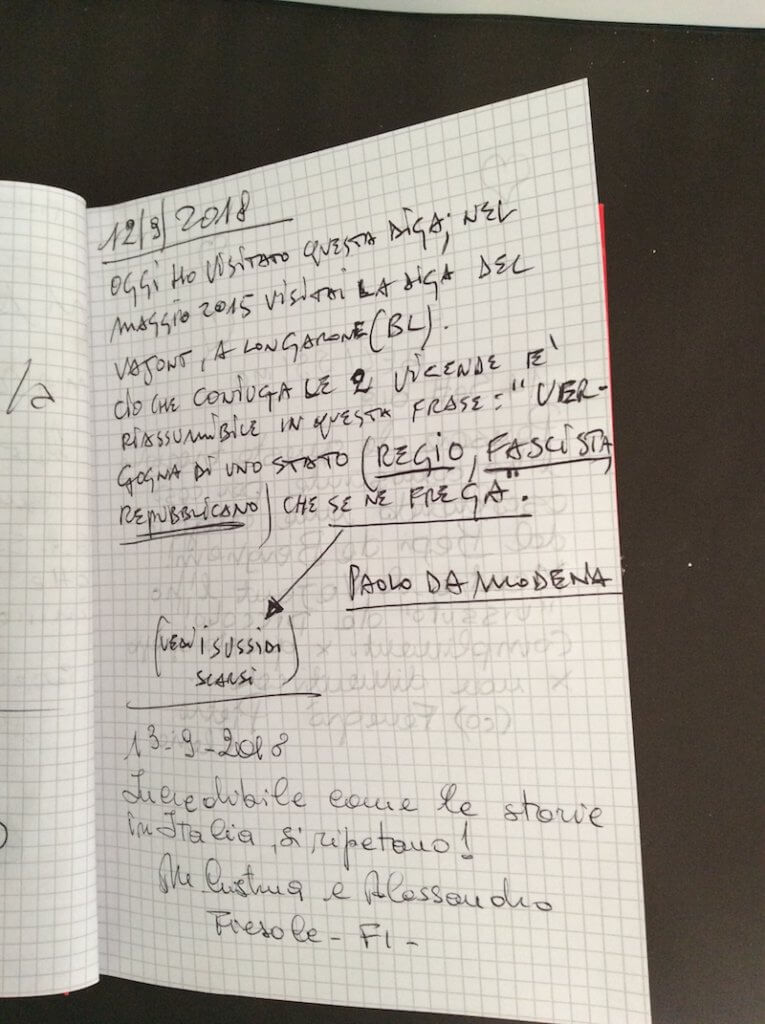 la
12/9/2018
OGGI HO VISITATO QUESTA DIGA; NEL
MAGGIO 2015 VISITAI LA DIGA DEL
VAJONT, A LONGARONE (BL).
CIO CHE CONIUGA LE 2 VICENDE E'
RIASSUMIBILE IN QUESTA FRASE: "VER-
GOGNA DI UNO STATO (REGIO, FASCISTA,
REPUBBLICANO) CHE SE NE FREGA".
PAOLO DA MODENA
(VEDI SUSSIDI
SCARSI)
13-9-2018
Incredibile come le storie
in Italia, si, ripetano!
e Alessandro
Fiesole - FI -